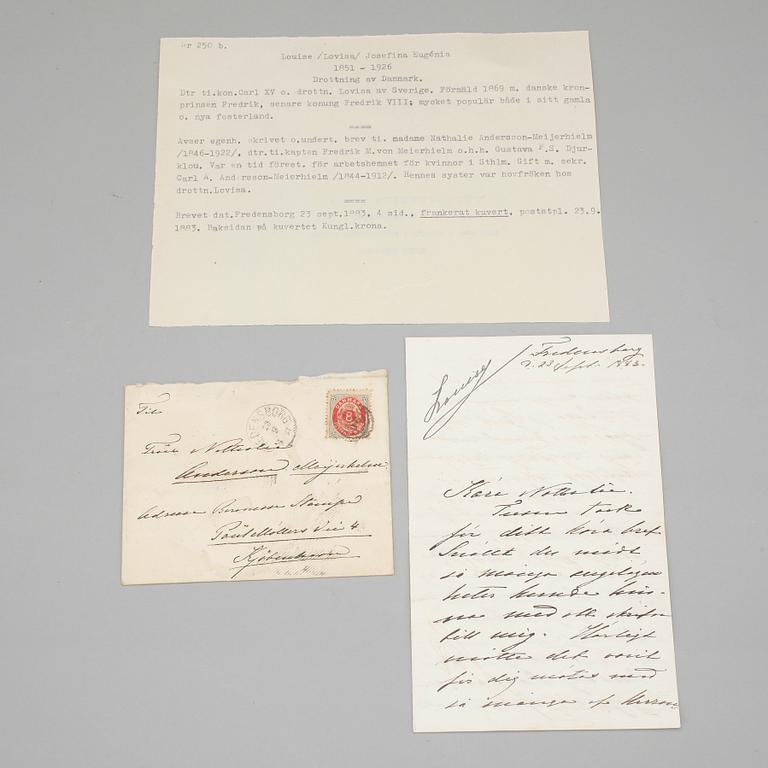 nr 250 b.
Louise /Lovisa/ Josefina Eugénia
1851 - 1926
Drottning av Danmark.
Dtr ti.kon.Carl XV o. drottn. Lovisa av Sverige. Förmäld 1869 m. danske kron-
prinsen Fredrik, senare konung Fredrik VIII; mycket populär både i sitt gamla
o. nya fosterland.
====
Avser egenh. skrivet o.undert. brev ti. madame Nathalie Andersson-Meijerhielm
/1846-1922/, dtr.ti.kapten Fredrik M.von Meierhielm o.h.h. Gustava F.S. Djur-
klou. Var en tid förest. för arbetshemmet för kvinnor i Sthlm. Gift m. sekr.
Carl A. Andersson-Meierhielm /1844-1912/. Hennes syster var hovfröken hos
drottn.Lovisa.
====
Brevet dat.Fredensborg 23 sept.1883, 4 sid., frankerat kuvert, poststpl. 23.9.
1883. Baksidan på kuvertet Kungl.krona.
Fredensborg
d. 23 Sept. 1883.
Louise
Kära Nathalie.
Tusen tack
för ditt kära bref
Snällt du midt
så många angelägen
heter kunde hin-
na med att skrifva
till mig. Härligt
måtte det varit
för dig mötas med
så många af
Til
Fru Nathalie
Anderson Meijerhelm
Adresse Baronesse Stampe
Poul Møllers Vei 4
Kjøbenhavn
DANMARK
8